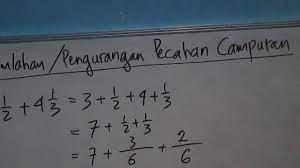 mlahan / Pengurangan Pecahan Campuran
1/2 + 4 1/3 = 3 + 1/2 + 4 + 1/3
= 7 + 1/2 + 1/3
= 7 + 3/6 + 2/6